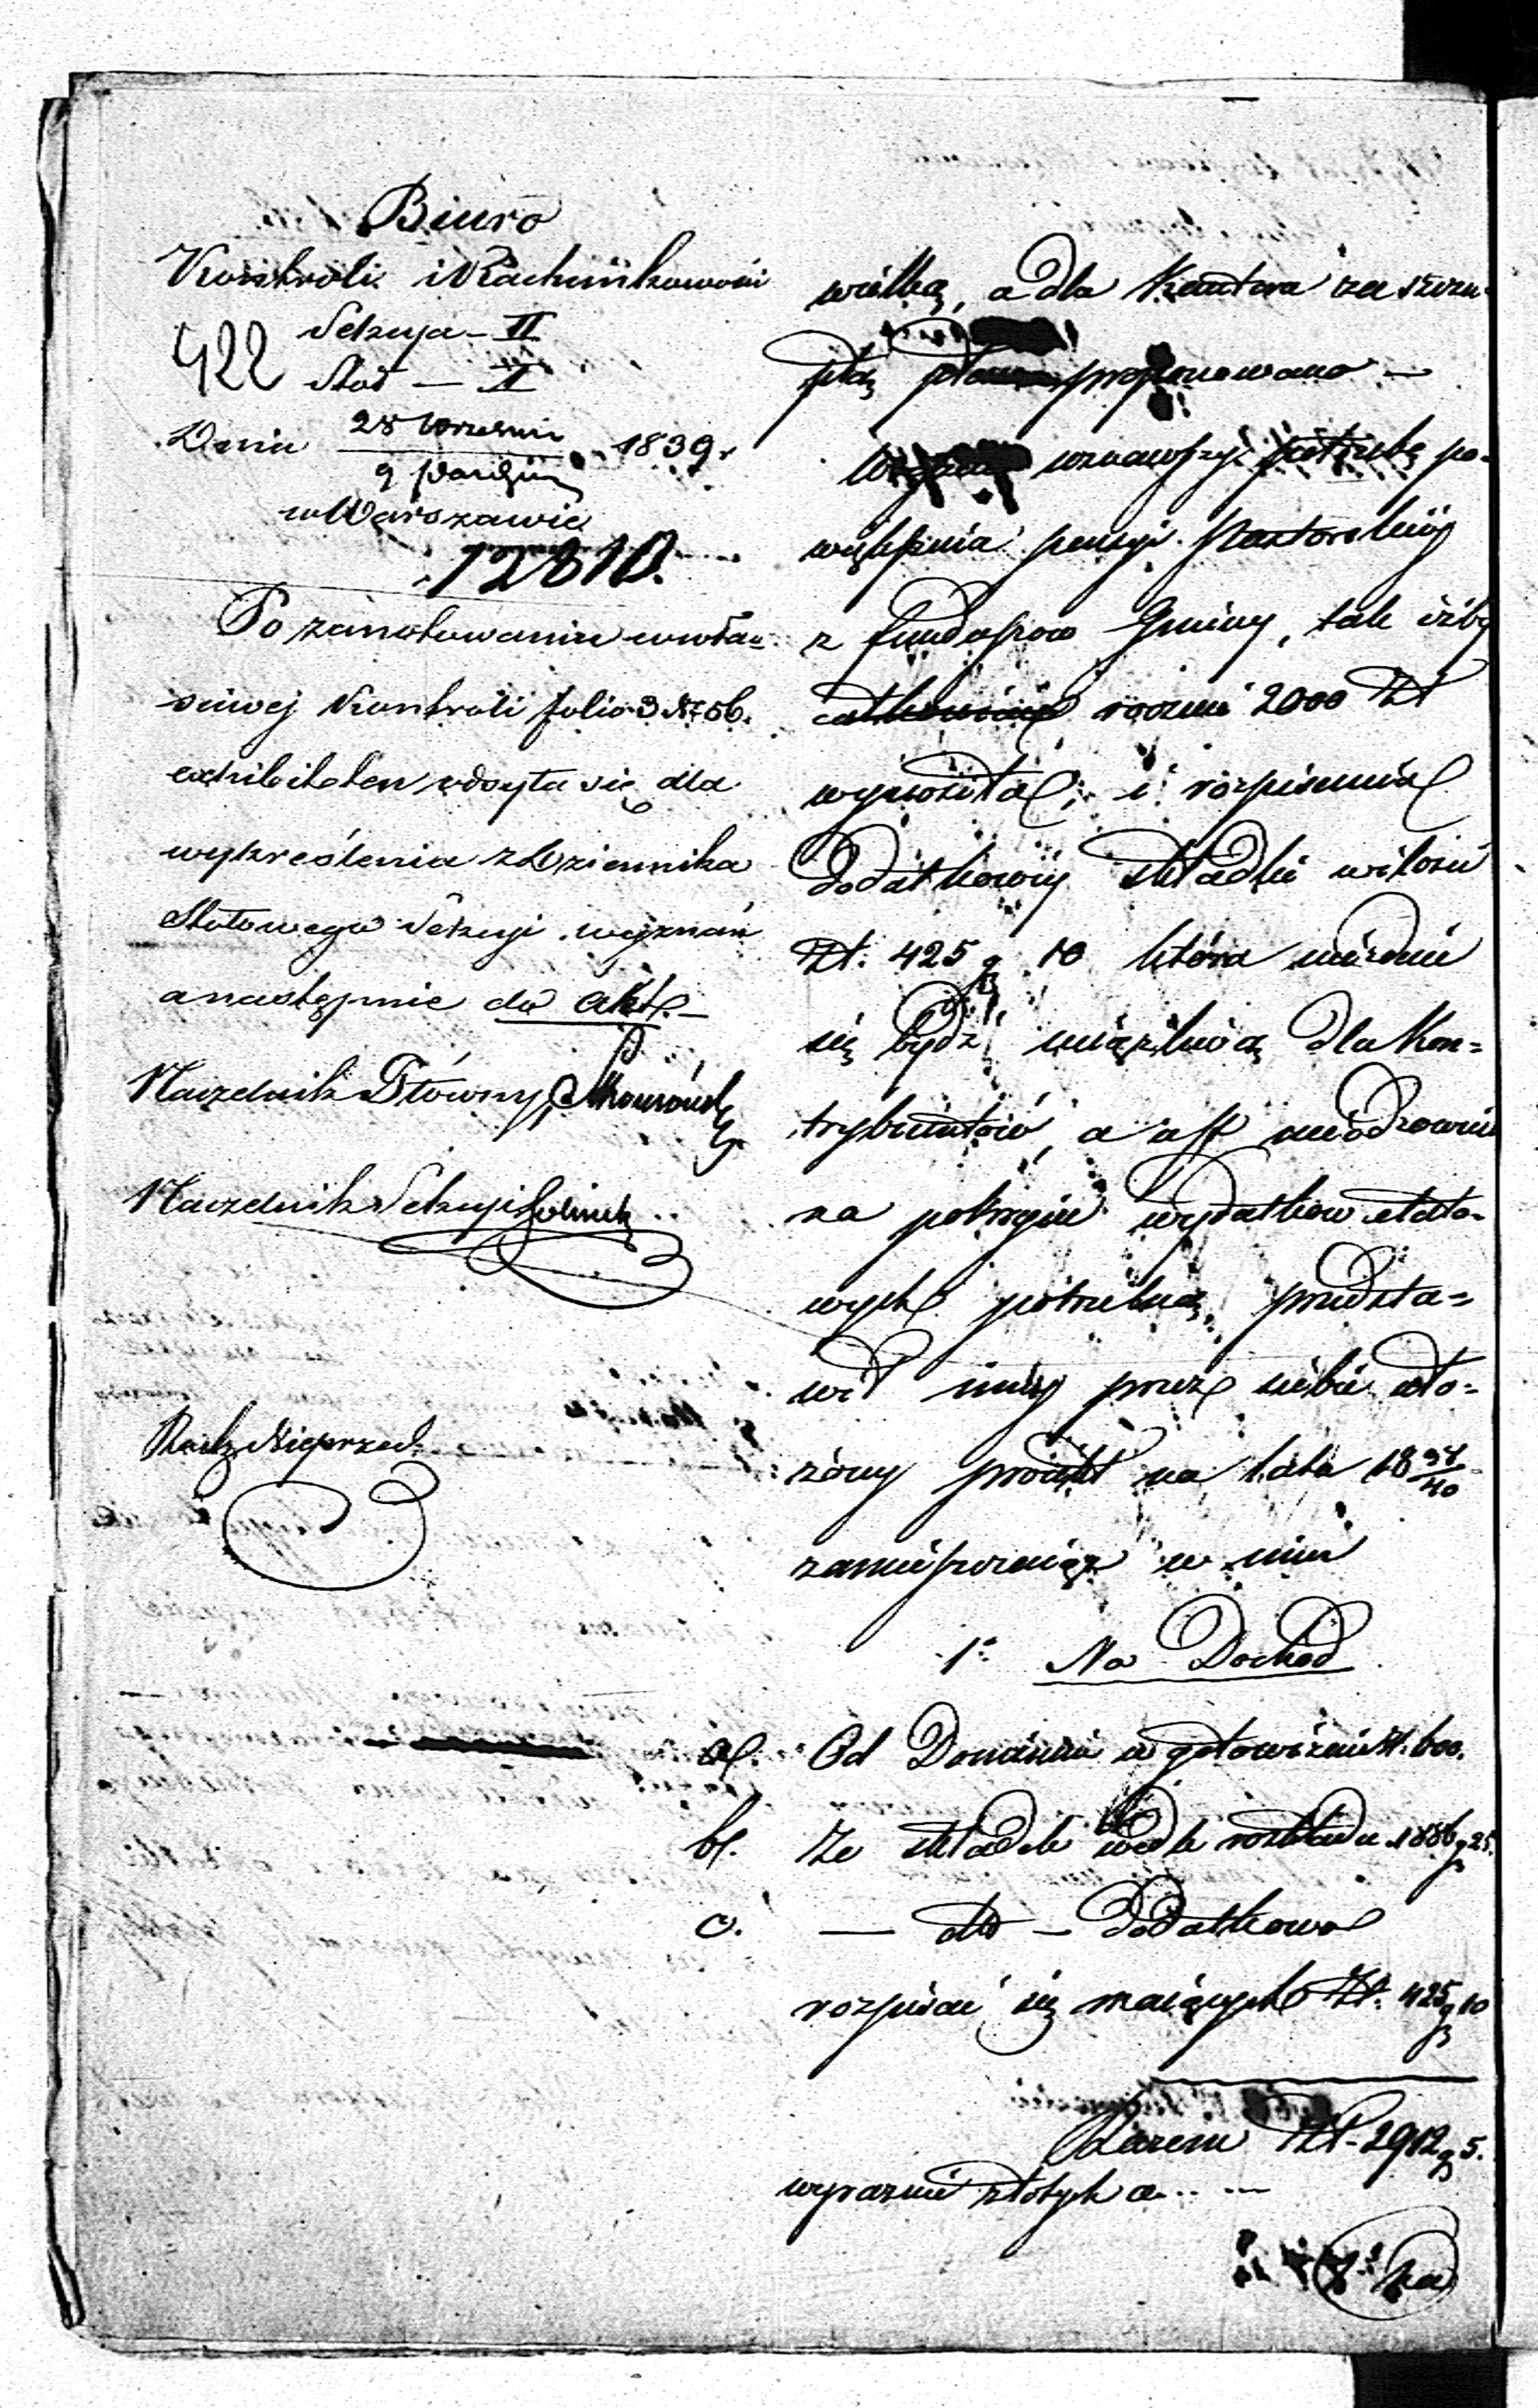 Biuro
Kontroli i Rachunkowości
Sekcya - II
422 Stół - II
Dnia 28 Września / 9 Paździer 1839 r
w Warszawie
12810.
Po zanotowaniu w wła=
sciwej Kontroli folio 3 N 56.
exhibit ten odsyła się dla
wykreślenia z Dziennika
Stołowego Sekcyi wyznań
a następnie do akt.
Naczelnik Główny
Naczelnik Sekcyi
wielką, a dla Kantora za szczu-
płą proponowano —
uznawszy potrzebę po-
większenia pensyi Pastorskiej
z funduszow Gminy, tak iżby
całkowicie rocznie 2000 Zł
wynosiła, i rozpisania
dodatkowej składki w ilości
Zł. 425 g 10 która niezdaie
się bydź uciążliwą dla Kon=
trybuentów, a iest nieodzownie
na pokrycie wydatkow etato-
wych potrzebną, przedsta=
wił inny przez siebie uło=
żony proiekt na lata 18 37/40
zamieszczaiąc w nim
1° Na Dochód
a. Od Dominium w gotowiźnie zł. 600.
b. Ze składek wedle rozkładu 1886 g 25.
c. — dto — dodatkowo
rozpisać się maiących Zł. 425 g 10
Razem Zł. 2912 g 5.
wyraźnie złotych
na